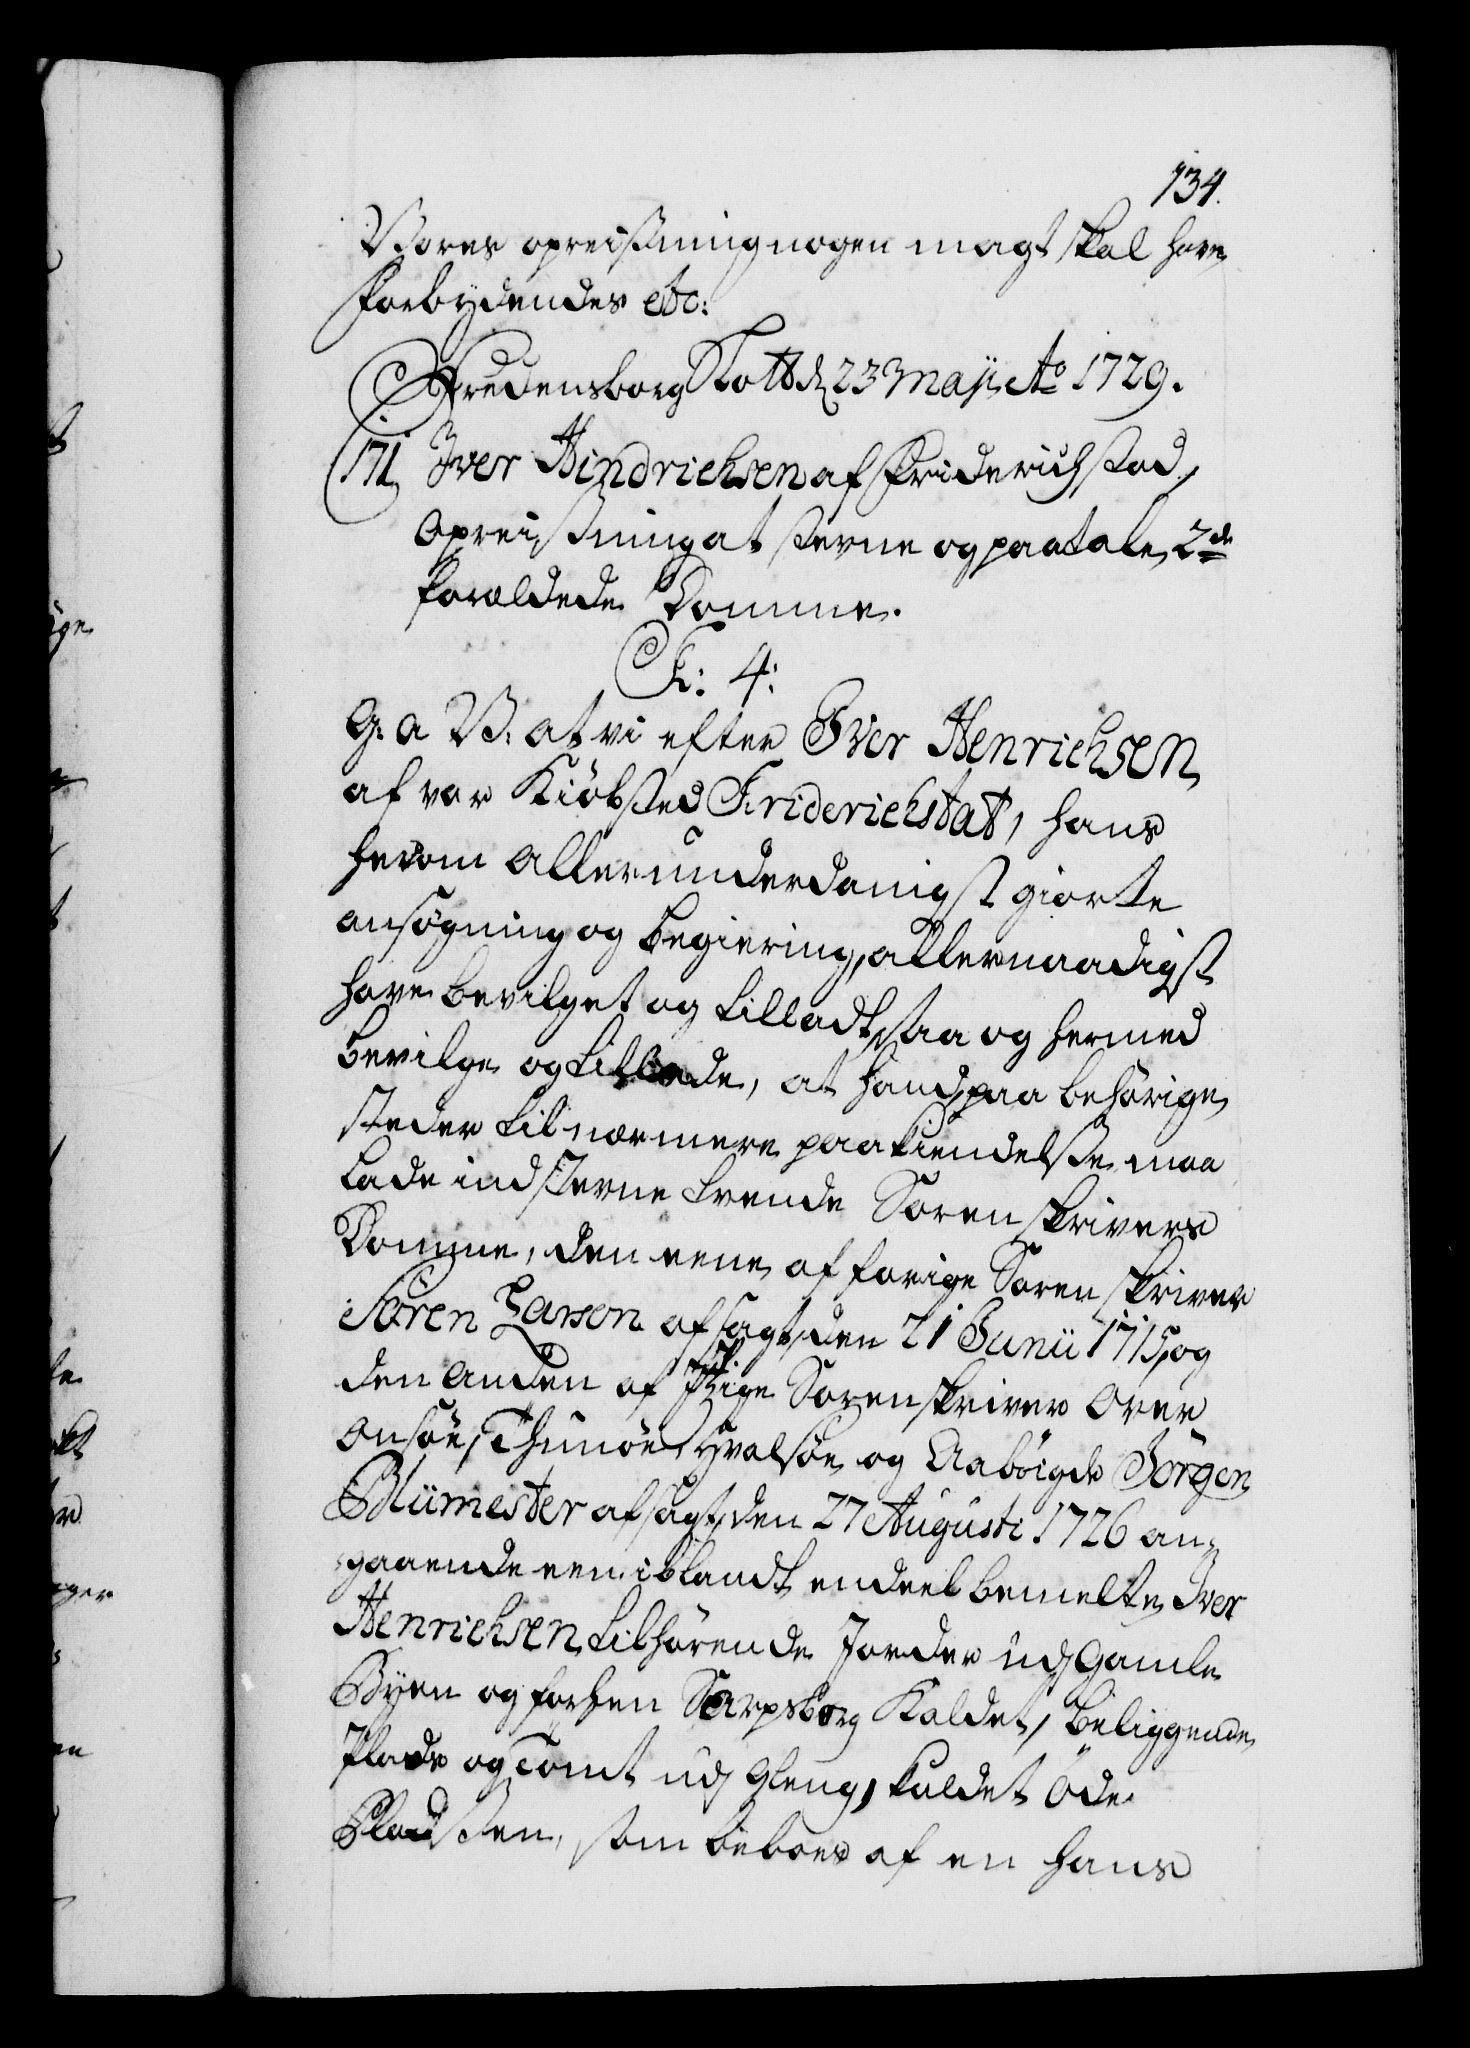 134.
Vores opreisning nogen magt skal have,
Forbydendes etc:
Fredensborg Slott d 23 Maji Ao 1729.
171 Iver Hindrichsen af Friderichstad,
Opreisning at stevne og paatale, 2de
forældede Domme.
F: 4:
G: a V: at vi efter Iver Henrichsen
af vor Kiöbsted Friderichstat, hans
herom allerunderdanigst giorte
ansøgning og begiering, allernaadigst
have bevilget og tilladt, saa og hermed
bevilge og tillade, at hand, paa behörige
steder til nærmere paakiendelse maa
lade indstevne tvende Sorenskrivers
Domme, den eene af forige Sorenskriver
Søren Larsen afsagt, den 21 Junii 1715, og
den anden af Itzige Sorenskriver over
Onsöe, Thunöe, Hvalsöe og Aaböigde Jörgen
Blümester afsagt, den 27 Augusti 1726 an-
gaaende een iblandt endeel bemelte Iver
Henrichsen tilhörende Jorder ud Gamle
Byen og forhen Sarpsborg Kaldet, beliggende
Plads og Tomt ud Gleng, kaldet Öde
Pladsen, som beboes af en hans